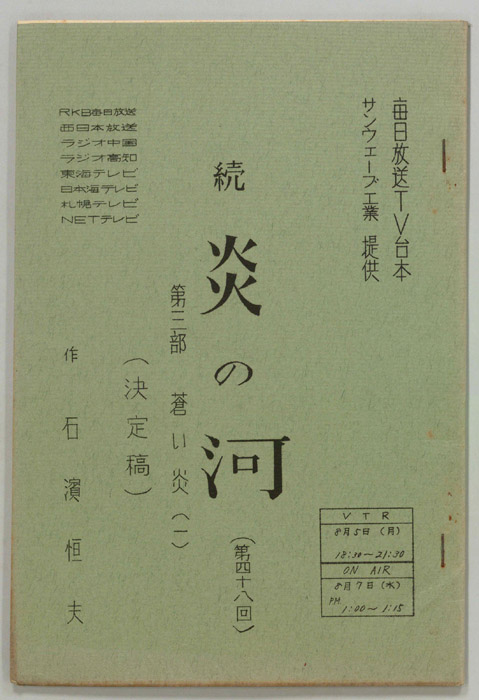 毎日放送TV台本
サンウェーブ工業 提供
続 炎の河
(第四十八回)
第三部 蒼い炎(一)
(決定稿)
作 石濱恒夫
RKB毎日放送
西日本放送
ラジオ中国
ラジオ高知
東海テレビ
日本海テレビ
札幌テレビ
NETテレビ
VTR
8月5日(月)
18:30〜21:30
ON AIR
8月7日(水)
PM 1:00〜1:15